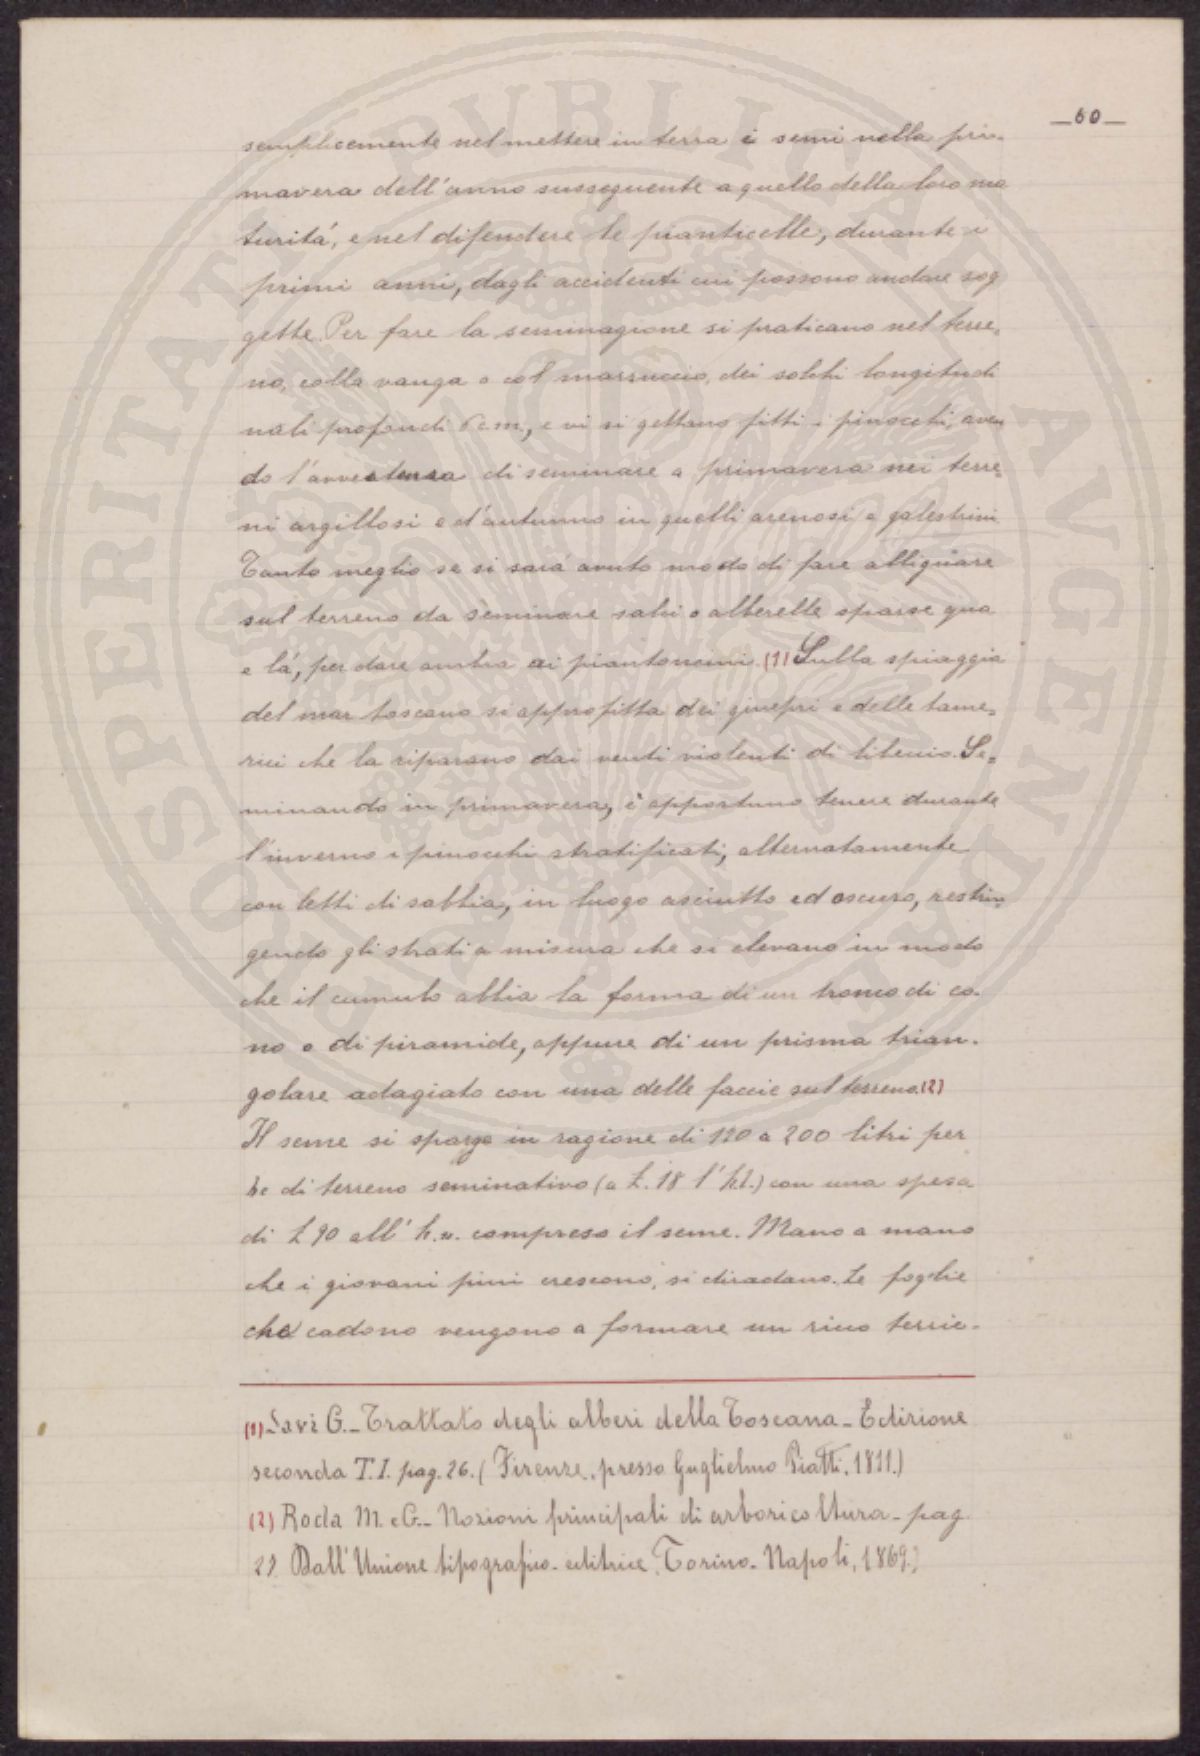 _60_
semplicemente nel mettere in terra i semi nella pri-
mavera dell'anno susseguente a quello della loro ma
turitá, e nel difendere le pianticelle, durante i
primi anni, dagli accidenti cui possono andare sog
gette. Per fare la seminagione si praticano nel terre=
no, colla vanga o col marruccio, dei solchi longitudi
nali profondi 6 cm, e vi si gettano fitti i pinocchi, aven
do l'avvertenza di seminare a primavera nei terre=
ni argillosi e d'autunno in quelli arenosi e galestrini
Tanto meglio se si sará avuto modo di fare allignare
sul terreno da seminare salci o alberelle sparse qua
e lá, per dare ombra ai piantoncini. (1) Sulla spiaggia
del mar toscano si approfitta dei ginepri e delle tame=
rici che la riparano dai venti violenti di libeccio. Se=
minando in primavera, é opportuno tenere durante
l'inverno i pinocchi stratificati, alternatamente
con letti di sabbia, in luogo asciutto ed oscuro, restrin=
gendo gli strati a misura che si elevano in modo
che il cumulo abbia la forma di un tronco di co-
no o di piramide, oppure di un prisma trian-
golare adagiato con una delle faccie sul terreno. (2)
Il seme si sparge in ragione di 120 a 200 litri per
di terreno seminativo (a £. 18 l'hl.) con una spesa
di £ 90 all' h.a. compreso il seme. Mano a mano
che i giovani pini crescono, si diradano. Le foglie
che cadono vengono a formare un ricco terric-
(1) Savi G._ Trattato degli alberi della Toscana _ Edizione
seconda T. I. pag. 26. (Firenze, presso Guglielmo Piatti, 1811.)
(2) Roda M. e G._ Nozioni principali di arboricoltura _ pag.
Dall'Unione tipografico-editrice, Torino-Napoli, 1869.)
PROSPERITATI PVBLICAE AVGENDAE